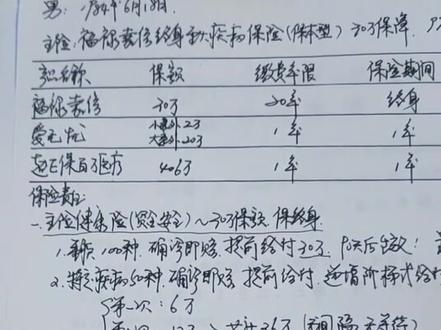 男: 1984年6月18日.
主险: 福禄嘉倍终身重大疾病保险(保本型) 30万保障.
险种名称 保额 缴费年限 保险期间
福禄嘉倍 30万 20年 终身
爱无忧 小意外2万 大意外20万 1年 1年
超e保百万医疗 406万 1年 1年
保险责任:
一.主险健康险(资金安全)~30万保额 保终身
1.重疾100种.确诊即赔.提前给付30万.
2.特定疾病50种.确诊即赔.提前给付.递增阶梯式给付
第一次: 6万